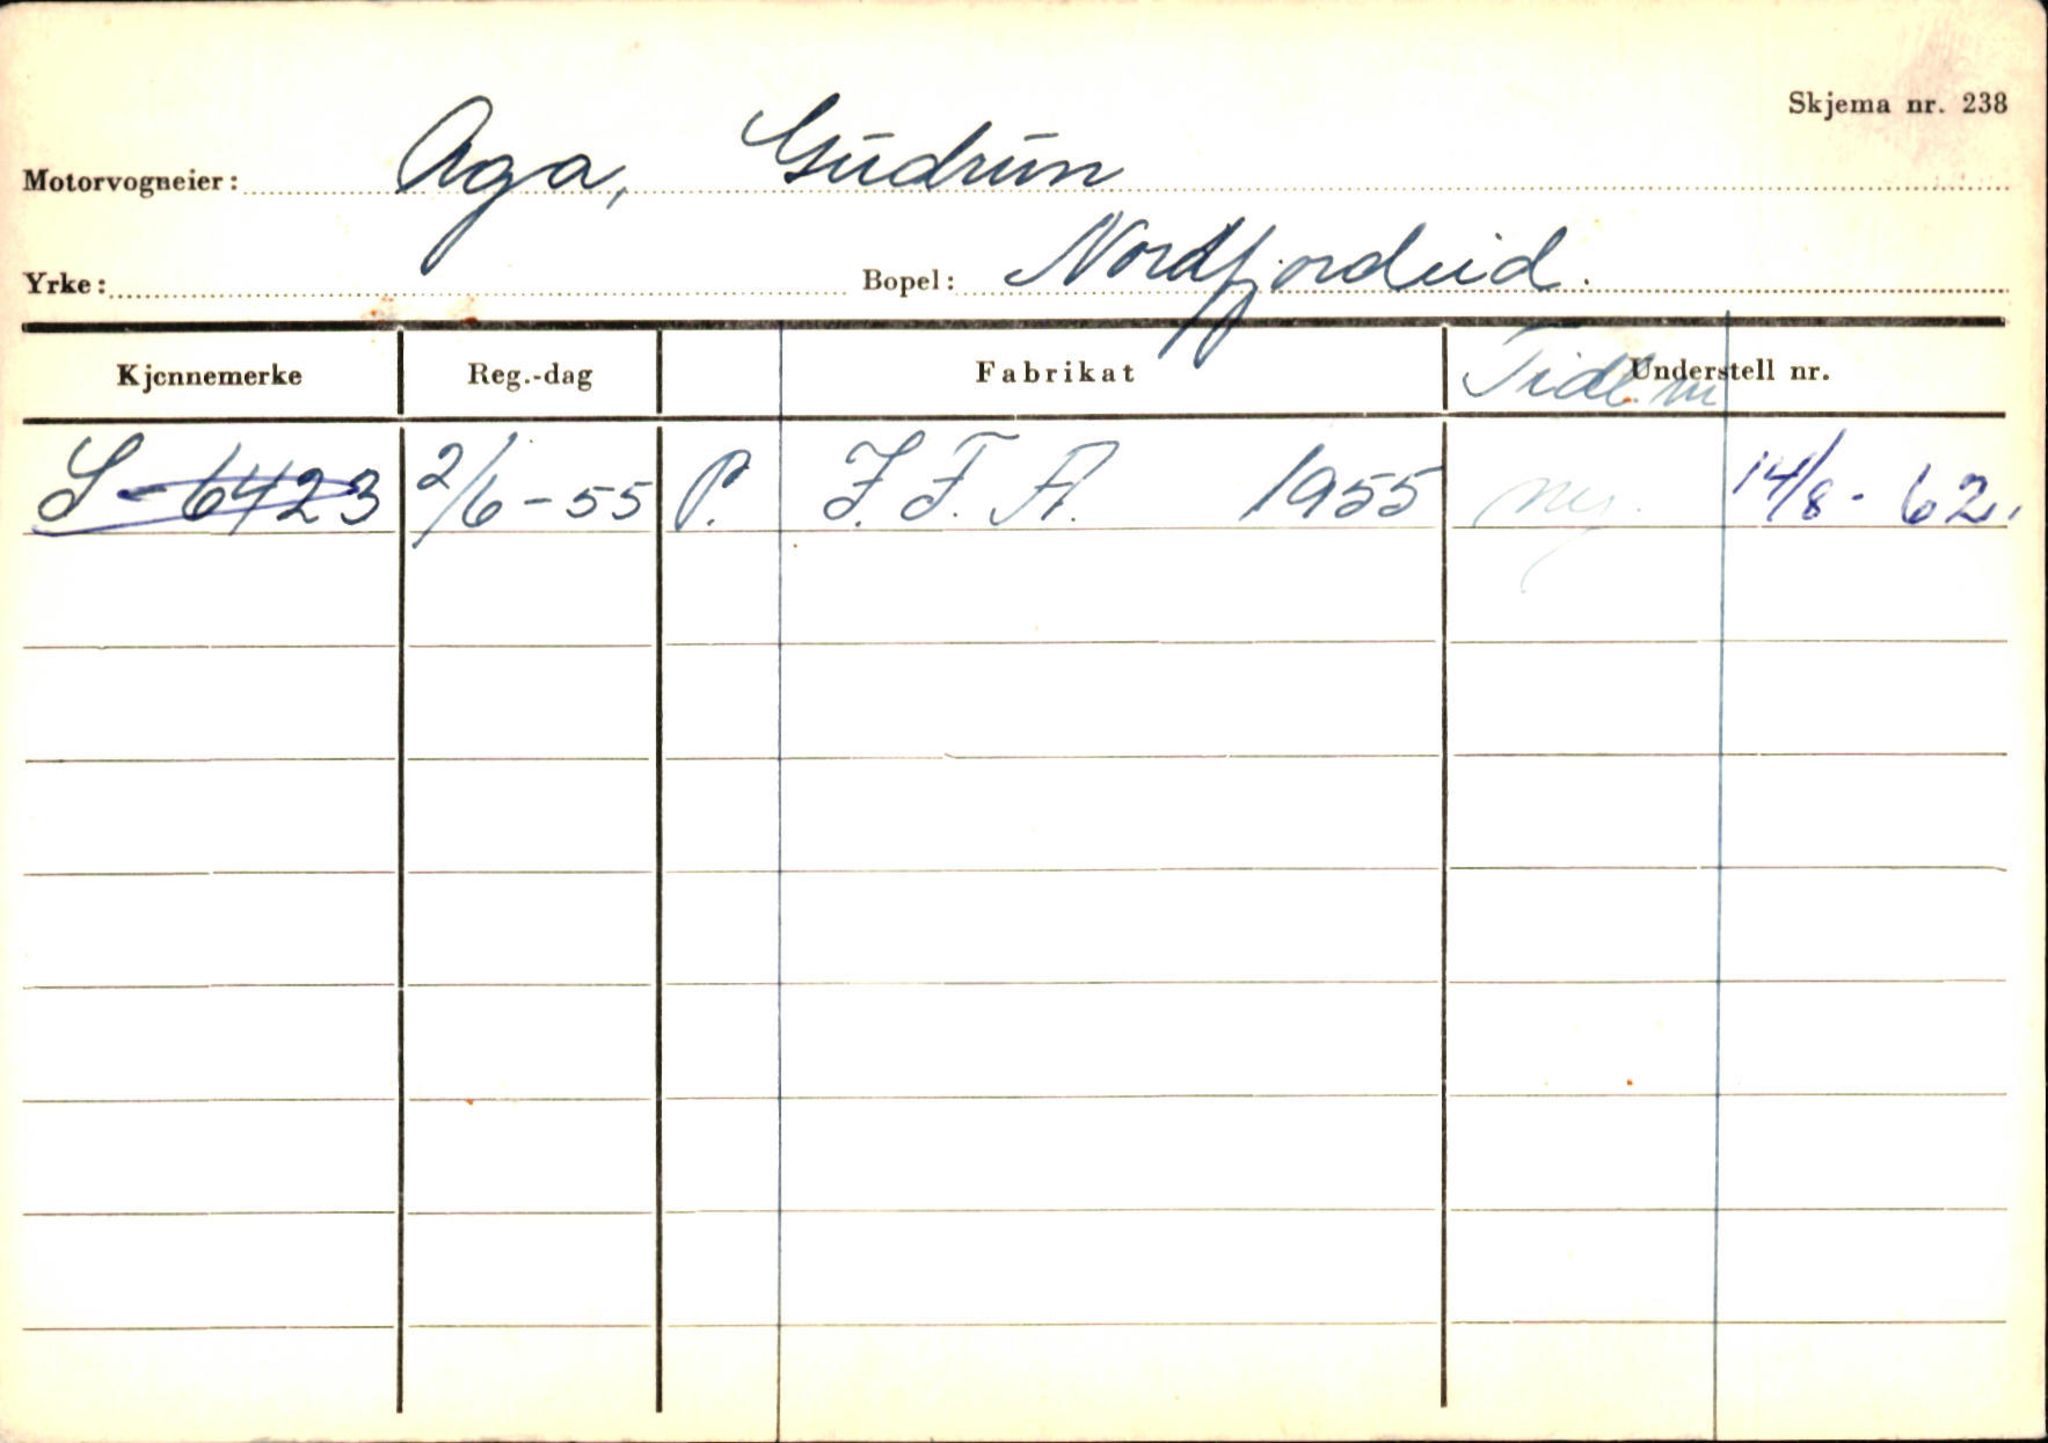 Skjema nr. 238
Motorvogneier: Aga, Gudrun
Yrke: Bopel: Nordfjordeid.
Kjennemerke Reg.-dag Fabrikat Tidl. m Understell nr.
S-6423 2/6-55 P. I.F.A. 1955 ny. 14/8-62.